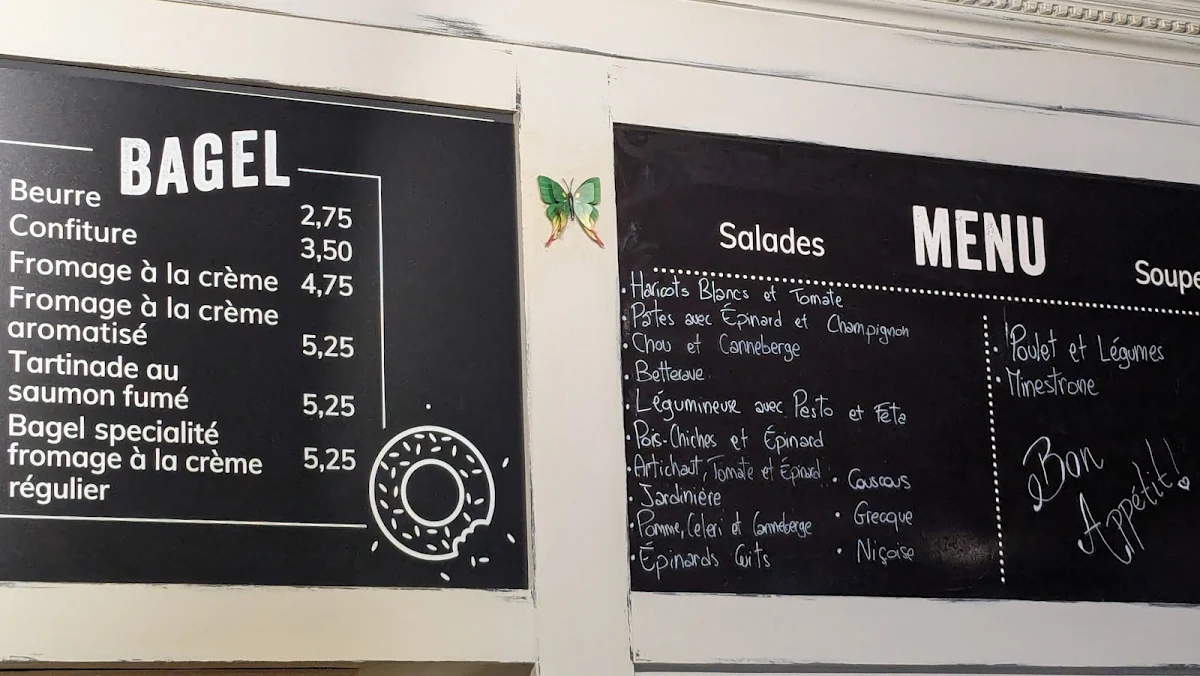 BAGEL
Beurre 2,75
Confiture 3,50
Fromage à la crème 4,75
Fromage à la crème
aromatisé 5,25
Tartinade au
saumon fumé 5,25
Bagel specialité
fromage à la crème 5,25
régulier
MENU
Salades
• Haricots Blancs et Tomate
• Pâtes avec Épinard et Champignon
• Chou et Canneberge
• Betterave
• Légumineuse avec Pesto et Feta
• Pois-Chiches et Épinard
• Artichaut, Tomate et Épinard
• Jardinière
• Pomme, Celeri et Canneberge
• Épinards Cuits
• Couscous
• Grecque
• Niçoise
Soupe
• Poulet et Légumes
• Minestrone
Bon
Appétit!